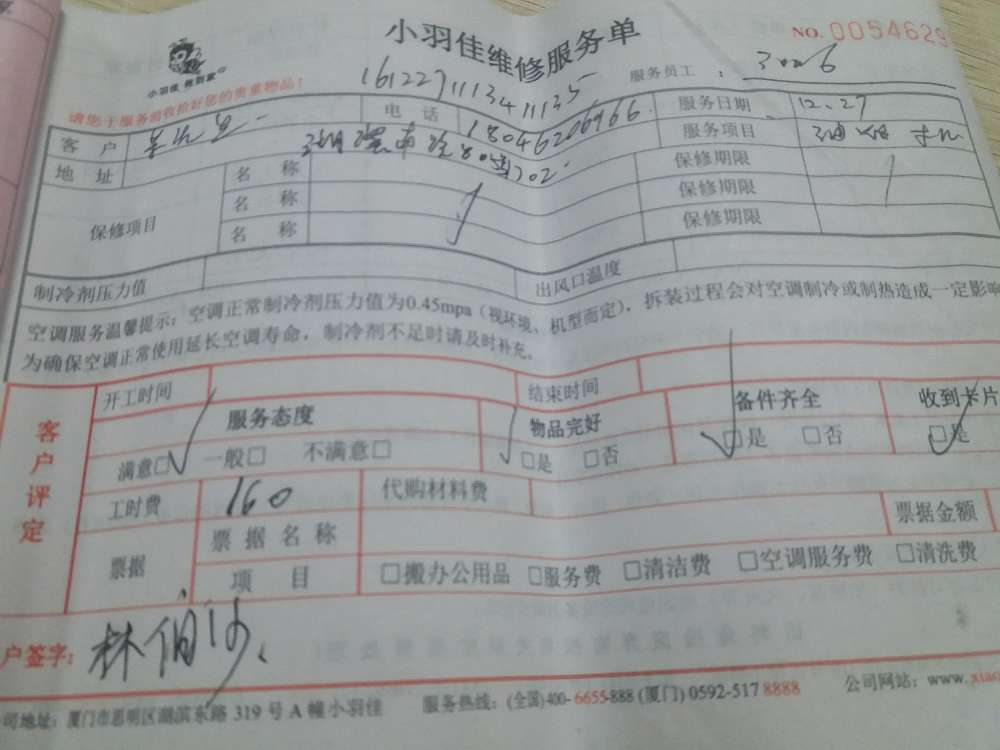 小羽佳维修服务单
NO. 0054629
小羽佳
请您于服务前收拾好您的贵重物品!
161227111341135
服务员工 : 3026
客 户 电 话 18046206966 服务日期 12.27
地 址 服务项目
保修项目 名 称 保修期限
名 称 保修期限
名 称 保修期限
制冷剂压力值 出风口温度
空调服务温馨提示: 空调正常制冷剂压力值为0.45mpa (视环境、机型而定), 拆装过程会对空调制冷或制热造成一定影响
为确保空调正常使用延长空调寿命, 制冷剂不足时请及时补充。
客户评定
开工时间 结束时间
服务态度 物品完好 备件齐全 收到卡片
满意□ 一般□ 不满意□ □是 □否 □是 □否 □是
工时费 160 代购材料费
票据 票 据 名 称 票据金额
项 目 □搬办公用品 □服务费 □清洁费 □空调服务费 □清洗费
户签字:
司地址: 厦门市思明区湖滨东路 319 号 A 幢小羽佳 服务热线: (全国)400-6655-888 (厦门) 0592-517 8888 公司网站: www.xiao